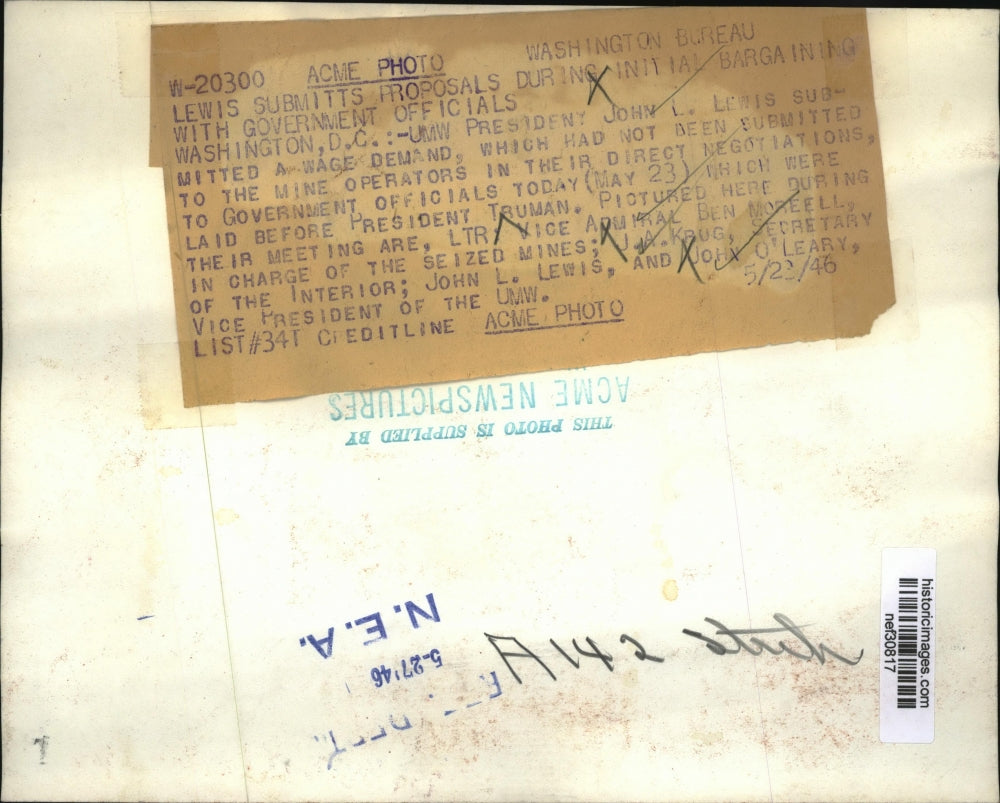 W-20300 ACME PHOTO WASHINGTON BUREAU
LEWIS SUBMITTS PROPOSALS DURING INITIAL BARGAINING
WITH GOVERNMENT OFFICIALS
WASHINGTON, D.C.:-UMW PRESIDENT JOHN L. LEWIS SUB-
MITTED A WAGE DEMAND, WHICH HAD NOT BEEN SUBMITTED
TO THE MINE OPERATORS IN THEIR DIRECT NEGOTIATIONS,
TO GOVERNMENT OFFICIALS TODAY (MAY 23) WHICH WERE
LAID BEFORE PRESIDENT TRUMAN. PICTURED HERE DURING
THEIR MEETING ARE, LTR, VICE ADMIRAL BEN MOREELL,
IN CHARGE OF THE SEIZED MINES; J.A.KRUG, SECRETARY
OF THE INTERIOR; JOHN L. LEWIS, AND JOHN O'LEARY,
VICE PRESIDENT OF THE UMW. 5/23/46
LIST#34T CREDITLINE ACME PHOTO
THIS PHOTO IS SUPPLIED BY
ACME NEWSPICTURES
N.E.A.
5-27'46
A 142
historicimages.com
nef30817